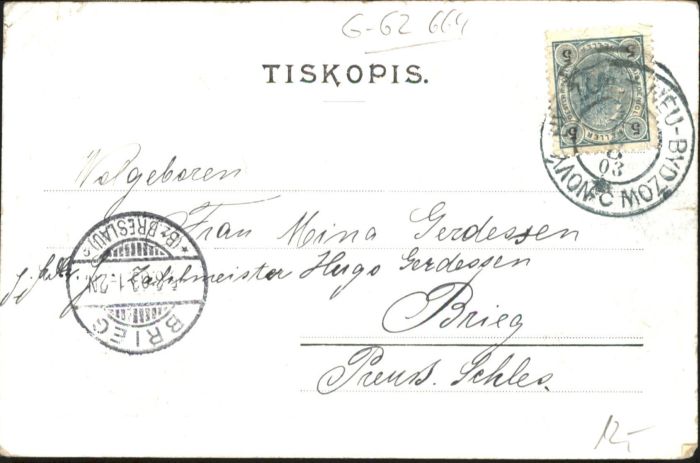 G-62 664
TISKOPIS.
5 5
HELLER
5 5
NEU-BYDŽOV
NOVÝ
03
Wolgeboren
Frau Mina Gerdessen
Zahlmeister Hugo Gerdessen
Brieg
Preuß. Schles.
BRIEG
*(Bz. BRESLAU)*
1-2N
12,-